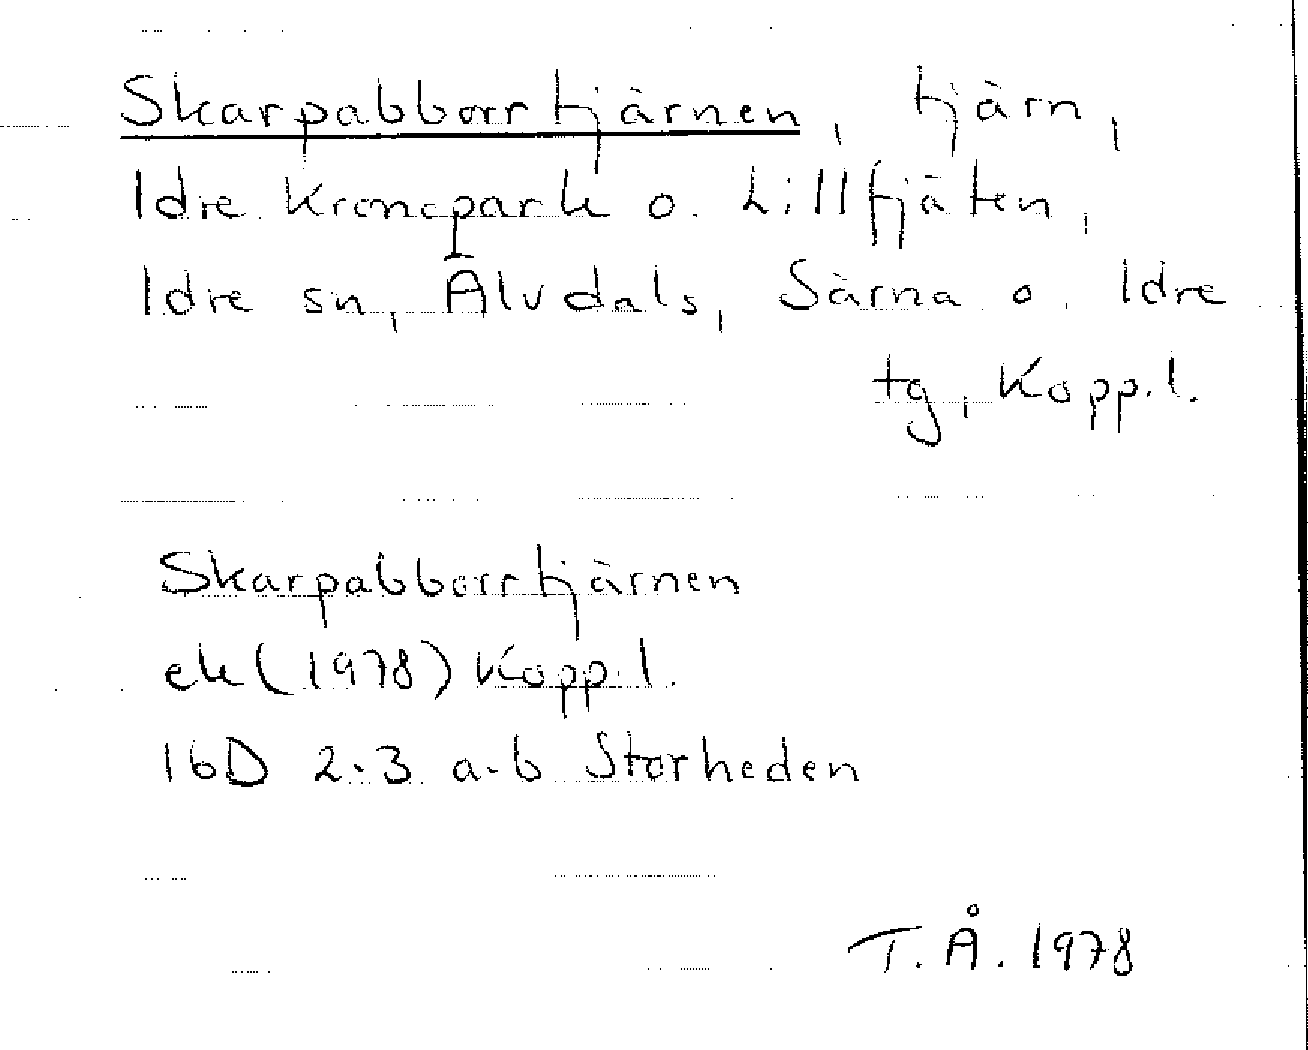 Skarpabborrtjärnen, tjärn,
Idre Kronopark o. Lillfjäten,
Idre sn, Älvdals, Särna o. Idre
tg, Kopp.l.
Skarpabborrtjärnen
ek (1978) Kopp.l.
16D 2-3 a-b Storheden
T.Å. 1978